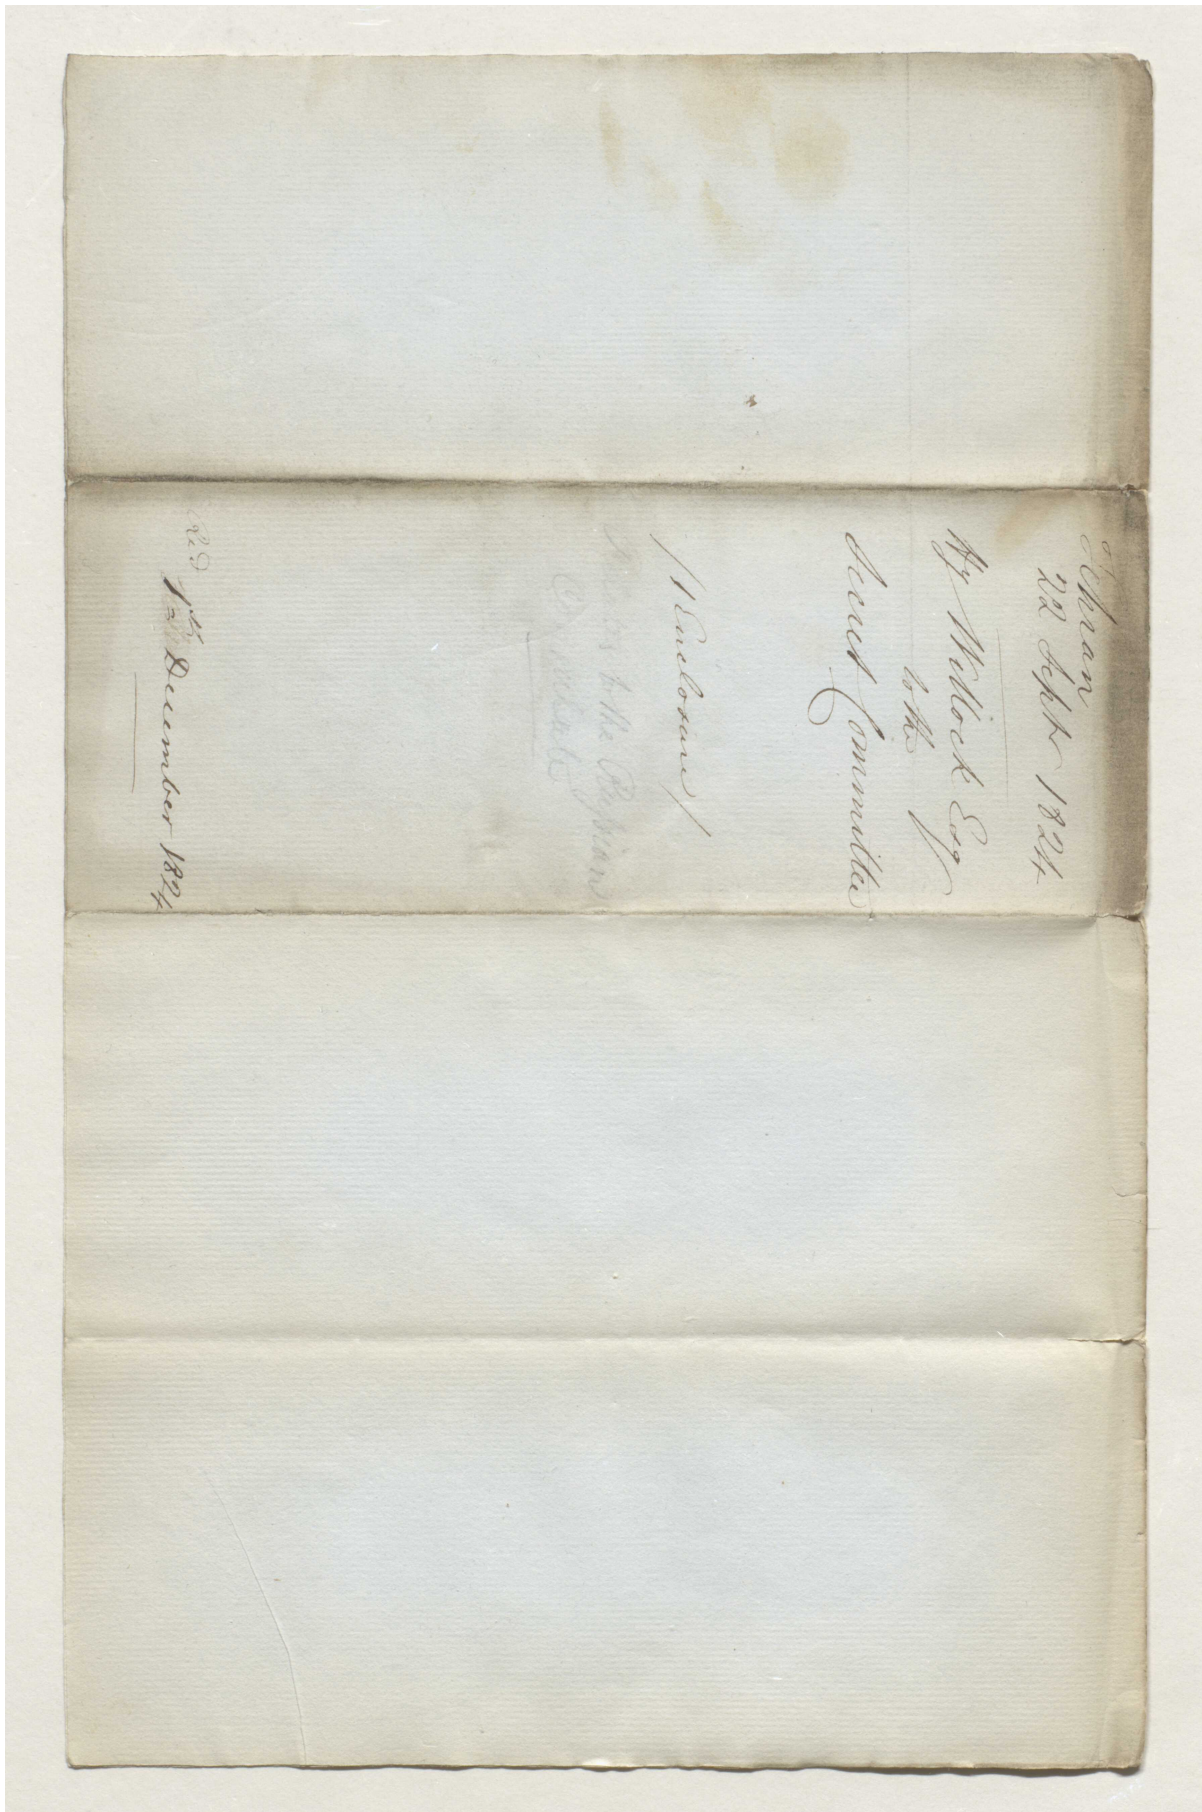 Tehran
22 Sept 1824
Hy Willock Esq
to the
Secret Committee
/ 1 Enclosure /
to the Russian
Recd 1st December 1824